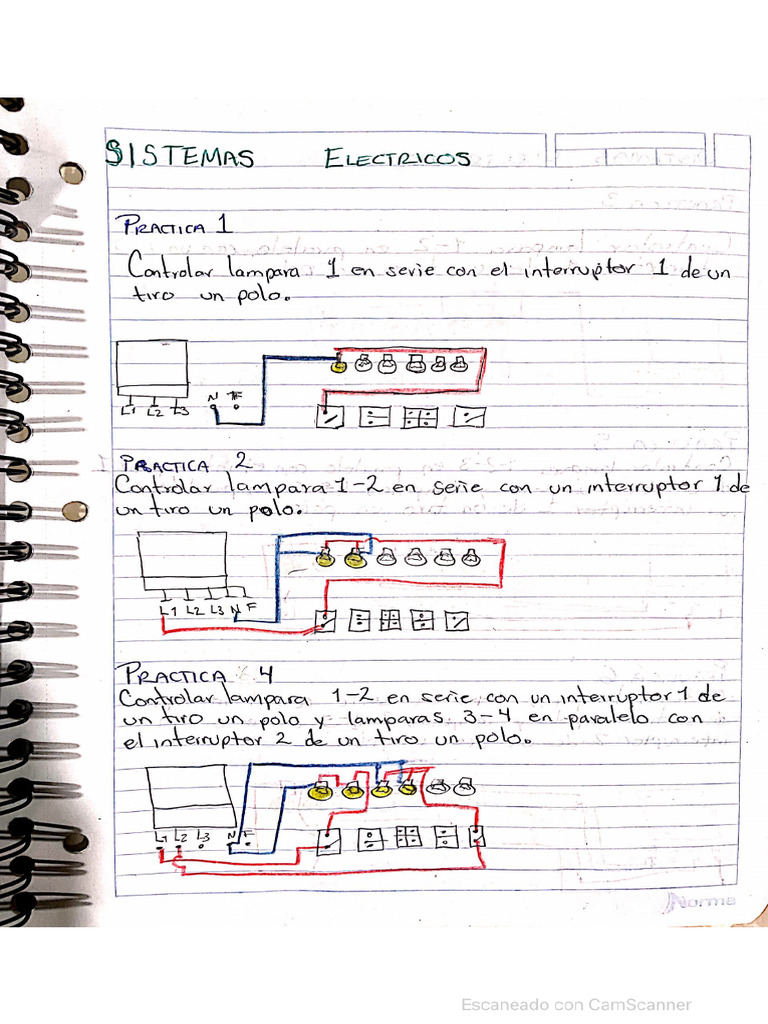 SISTEMAS ELECTRICOS
PRACTICA 1
Controlar lampara 1 en serie con el interruptor 1 de un
tiro un polo.
L1 L2 L3 N TF
PRACTICA 2
Controlar lampara 1-2 en serie con un interruptor 1 de
un tiro un polo.
L1 L2 L3 N F
PRACTICA 4
Controlar lampara 1-2 en serie con un interruptor 1 de
un tiro un polo y lamparas 3-4 en paralelo con
el interruptor 2 de un tiro un polo.
L1 L2 L3 N F
Norma
Escaneado con CamScanner